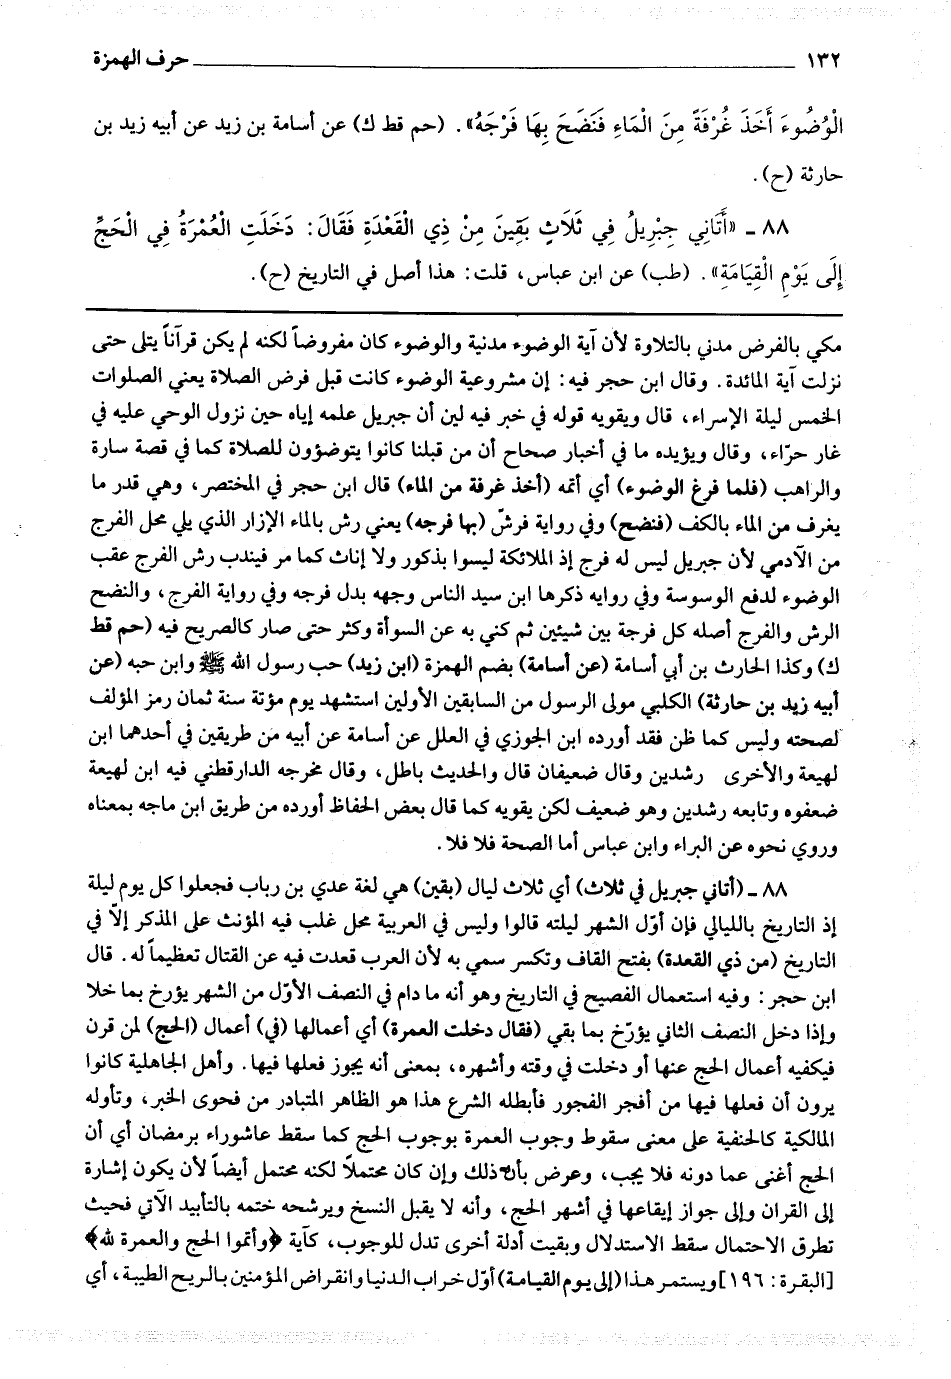 ١٣٢ ــــــــــــــــــــ حرف الهمزة
الْوُضُوءَ أَخَذَ غُرْفَةً مِنَ الْمَاءِ فَنَضَحَ بِهَا فَرْجَهُ». (حم قط ك) عن أسامة بن زيد عن أبيه زيد بن
حارثة (ح).
٨٨ ـ «أَتَانِي جِبْرِيلُ فِي ثَلَاثٍ بَقِينَ مِنْ ذِي الْقَعْدَةِ فَقَالَ: دَخَلَتِ الْعُمْرَةُ فِي الْحَجِّ
إِلَى يَوْمِ الْقِيَامَةِ». (طب) عن ابن عباس، قلت: هذا أصل في التاريخ (ح).
مكي بالفرض مدني بالتلاوة لأن آية الوضوء مدنية والوضوء كان مفروضاً لكنه لم يكن قرآناً يتلى حتى
نزلت آية المائدة. وقال ابن حجر فيه: إن مشروعية الوضوء كانت قبل فرض الصلاة يعني الصلوات
الخمس ليلة الإسراء، قال ويقويه قوله في خبر فيه لين أن جبريل علمه إياه حين نزول الوحي عليه في
غار حرّاء، وقال ويؤيده ما في أخبار صحاح أن من قبلنا كانوا يتوضؤون للصلاة كما في قصة سارة
والراهب (فلما فرغ الوضوء) أي أتمه (أخذ غرفة من الماء) قال ابن حجر في المختصر، وهي قدر ما
يغرف من الماء بالكف (فنضح) وفي رواية فرشّ (بها فرجه) يعني رش بالماء الإزار الذي يلي محل الفرج
من الآدمي لأن جبريل ليس له فرج إذ الملائكة ليسوا بذكور ولا إناث كما مر فيندب رش الفرج عقب
الوضوء لدفع الوسوسة وفي روايه ذكرها ابن سيد الناس وجهه بدل فرجه وفي رواية الفرج، والنضح
الرش والفرج أصله كل فرجة بين شيئين ثم كني به عن السوأة وكثر حتى صار كالصريح فيه (حم قط
ك) وكذا الحارث بن أبي أسامة (عن أسامة) بضم الهمزة (ابن زيد) حب رسول الله ﷺ وابن حبه (عن
أبيه زيد بن حارثة) الكلبي مولى الرسول من السابقين الأولين استشهد يوم مؤتة سنة ثمان رمز المؤلف
لصحته وليس كما ظن فقد أورده ابن الجوزي في العلل عن أسامة عن أبيه من طريقين في أحدهما ابن
لهيعة والأخرى رشدين وقال ضعيفان قال والحديث باطل، وقال مخرجه الدارقطني فيه ابن لهيعة
ضعفوه وتابعه رشدين وهو ضعيف لكن يقويه كما قال بعض الحفاظ أورده من طريق ابن ماجه بمعناه
وروي نحوه عن البراء وابن عباس أما الصحة فلا فلا.
٨٨ ـ (أتاني جبريل في ثلاث) أي ثلاث ليال (بقين) هي لغة عدي بن رباب فجعلوا كل يوم ليلة
إذ التاريخ بالليالي فإن أوّل الشهر ليلته قالوا وليس في العربية محل غلب فيه المؤنث على المذكر إلّا في
التاريخ (من ذي القعدة) بفتح القاف وتكسر سمي به لأن العرب قعدت فيه عن القتال تعظيماً له. قال
ابن حجر: وفيه استعمال الفصيح في التاريخ وهو أنه ما دام في النصف الأوّل من الشهر يؤرخ بما خلا
وإذا دخل النصف الثاني يؤرّخ بما بقي (فقال دخلت العمرة) أي أعمالها (في) أعمال (الحج) لمن قرن
فيكفيه أعمال الحج عنها أو دخلت في وقته وأشهره، بمعنى أنه يجوز فعلها فيها. وأهل الجاهلية كانوا
يرون أن فعلها فيها من أفجر الفجور فأبطله الشرع هذا هو الظاهر المتبادر من فحوى الخبر، وتأوله
المالكية كالحنفية على معنى سقوط وجوب العمرة بوجوب الحج كما سقط عاشوراء برمضان أي أن
الحج أغنى عما دونه فلا يجب، وعرض بأن ذلك وإن كان محتملاً لكنه محتمل أيضاً لأن يكون إشارة
إلى القران وإلى جواز إيقاعها في أشهر الحج، وأنه لا يقبل النسخ ويرشحه ختمه بالتأبيد الآتي فحيث
تطرق الاحتمال سقط الاستدلال وبقيت أدلة أخرى تدل للوجوب، كآية ﴿وأتموا الحج والعمرة لله﴾
[البقرة: ١٩٦] ويستمر هذا (إلى يوم القيامة) أوّل خراب الدنيا وانقراض المؤمنين بالريح الطيبة، أي